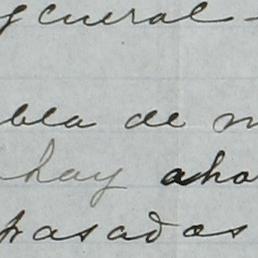 general
bla de
hay aho
pasados